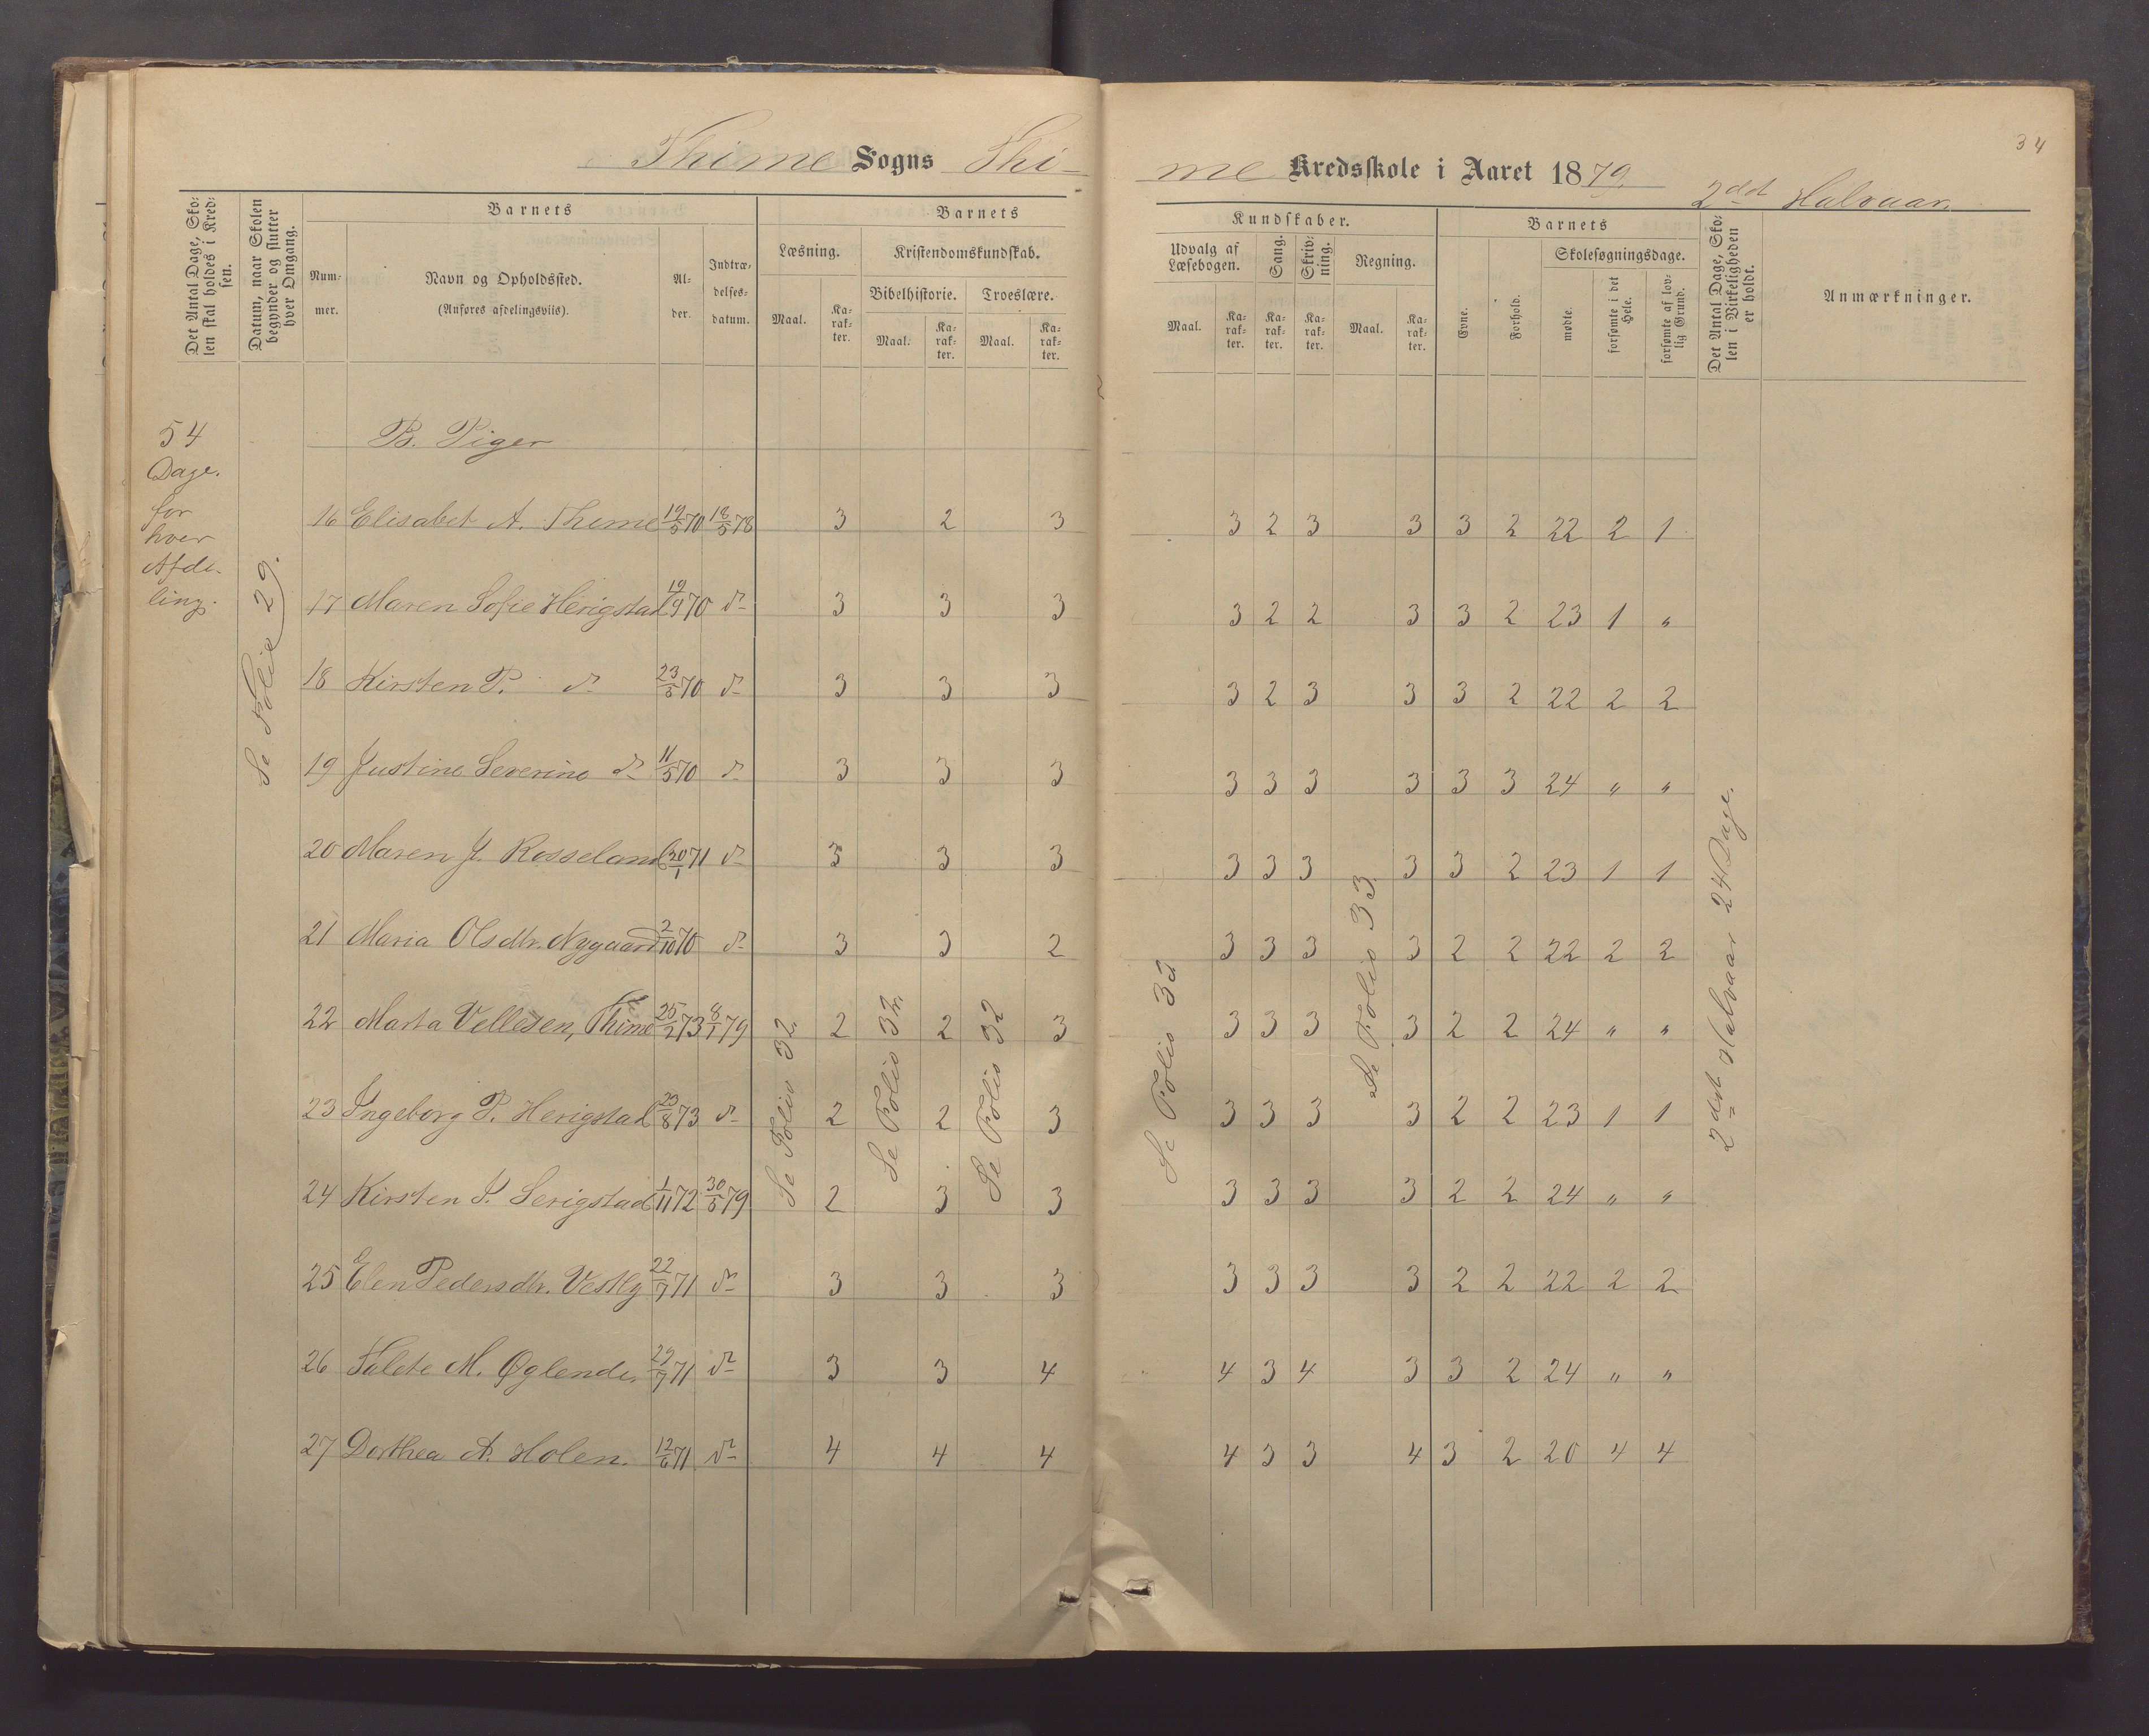 34
Thime Sogns Thi-
me Kredsskole i Aaret 1879.
2det Halvaar.
Det Antal Dage, Sko-
len skal holdes i Kred-
sen.
Datum, naar Skolen
begynder og slutter
hver Omgang.
Barnets
Num-
mer.
Navn og Opholdssted.
(Anføres afdelingsviis).
Al-
der.
Indtræ-
delses-
datum.
Barnets
Læsning.
Maal. Ka-rak-ter.
Kristendomskundskab.
Bibelhistorie. Troeslære.
Maal. Ka-rak-ter. Maal. Ka-rak-ter.
Kundskaber.
Udvalg af
Læsebogen.
Sang.
Skriv-
ning.
Regning.
Maal. Ka-rak-ter. Ka-rak-ter. Ka-rak-ter. Maal. Ka-rak-ter.
Barnets
Evne.
Forhold.
Skolesøgningsdage.
mødte.
forsømte i det
Hele.
forsømte af lov-
lig Grund.
Det Antal Dage, Sko-
len i Virkeligheden
er holdt.
Anmærkninger.
54
Dage.
for
hver
Afde-
ling.
Se Folie 29.
B. Piger
16 Elisabet A. Thime 19/5 70 18/5 78 3 2 3 3 2 3 3 3 2 22 2 1
17 Maren Sofie Herigstad 19/9 70 d- 3 3 3 3 2 2 3 3 2 23 1 "
18 Kirsten P. d- 23/5 70 d- 3 3 3 3 2 3 3 3 2 22 2 2
19 Justine Severine d- 11/5 70 d- 3 3 3 3 3 3 3 3 3 24 " "
20 Maren J. Rosseland 30/1 71 d- 3 3 3 3 3 3 3 3 2 23 1 1
21 Maria Olsdtr. Nygaard 2/10 70 d- 3 3 2 3 3 3 3 2 2 22 2 2
22 Marta Vellesen, Thime 25/2 73 8/1 79 2 2 3 3 3 3 3 2 2 24 " "
23 Ingeborg P. Herigstad 23/8 73 d- 2 2 3 3 3 3 3 2 2 23 1 1
24 Kirsten P. Serigstad 1/11 72 30/5 79 2 3 3 3 3 3 3 2 2 24 " "
25 Elen Pedersdtr. Vestly 22/7 71 d- 3 3 3 3 3 3 3 2 2 22 2 2
26 Talete M. Øglende. 29/7 71 d- 3 3 4 4 3 4 3 3 2 24 " "
27 Dorthea A. Holen. 12/6 71 d- 4 4 4 4 3 3 4 3 2 20 4 4
Se Folio 32
Se Folio 32.
Se Folio 32
Se Folio 33
Se Folio 33.
2det Halvaar 24 Dage.